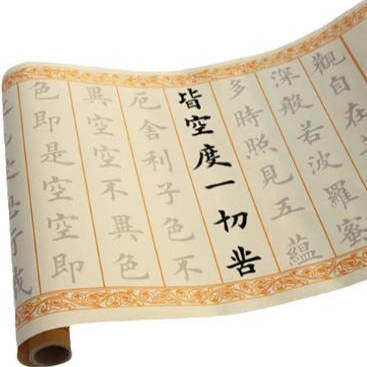 觀自在
深般若波羅蜜
多時照見五蘊
皆空度一切苦
厄舍利子色不
異空空不異色
色即是空空即